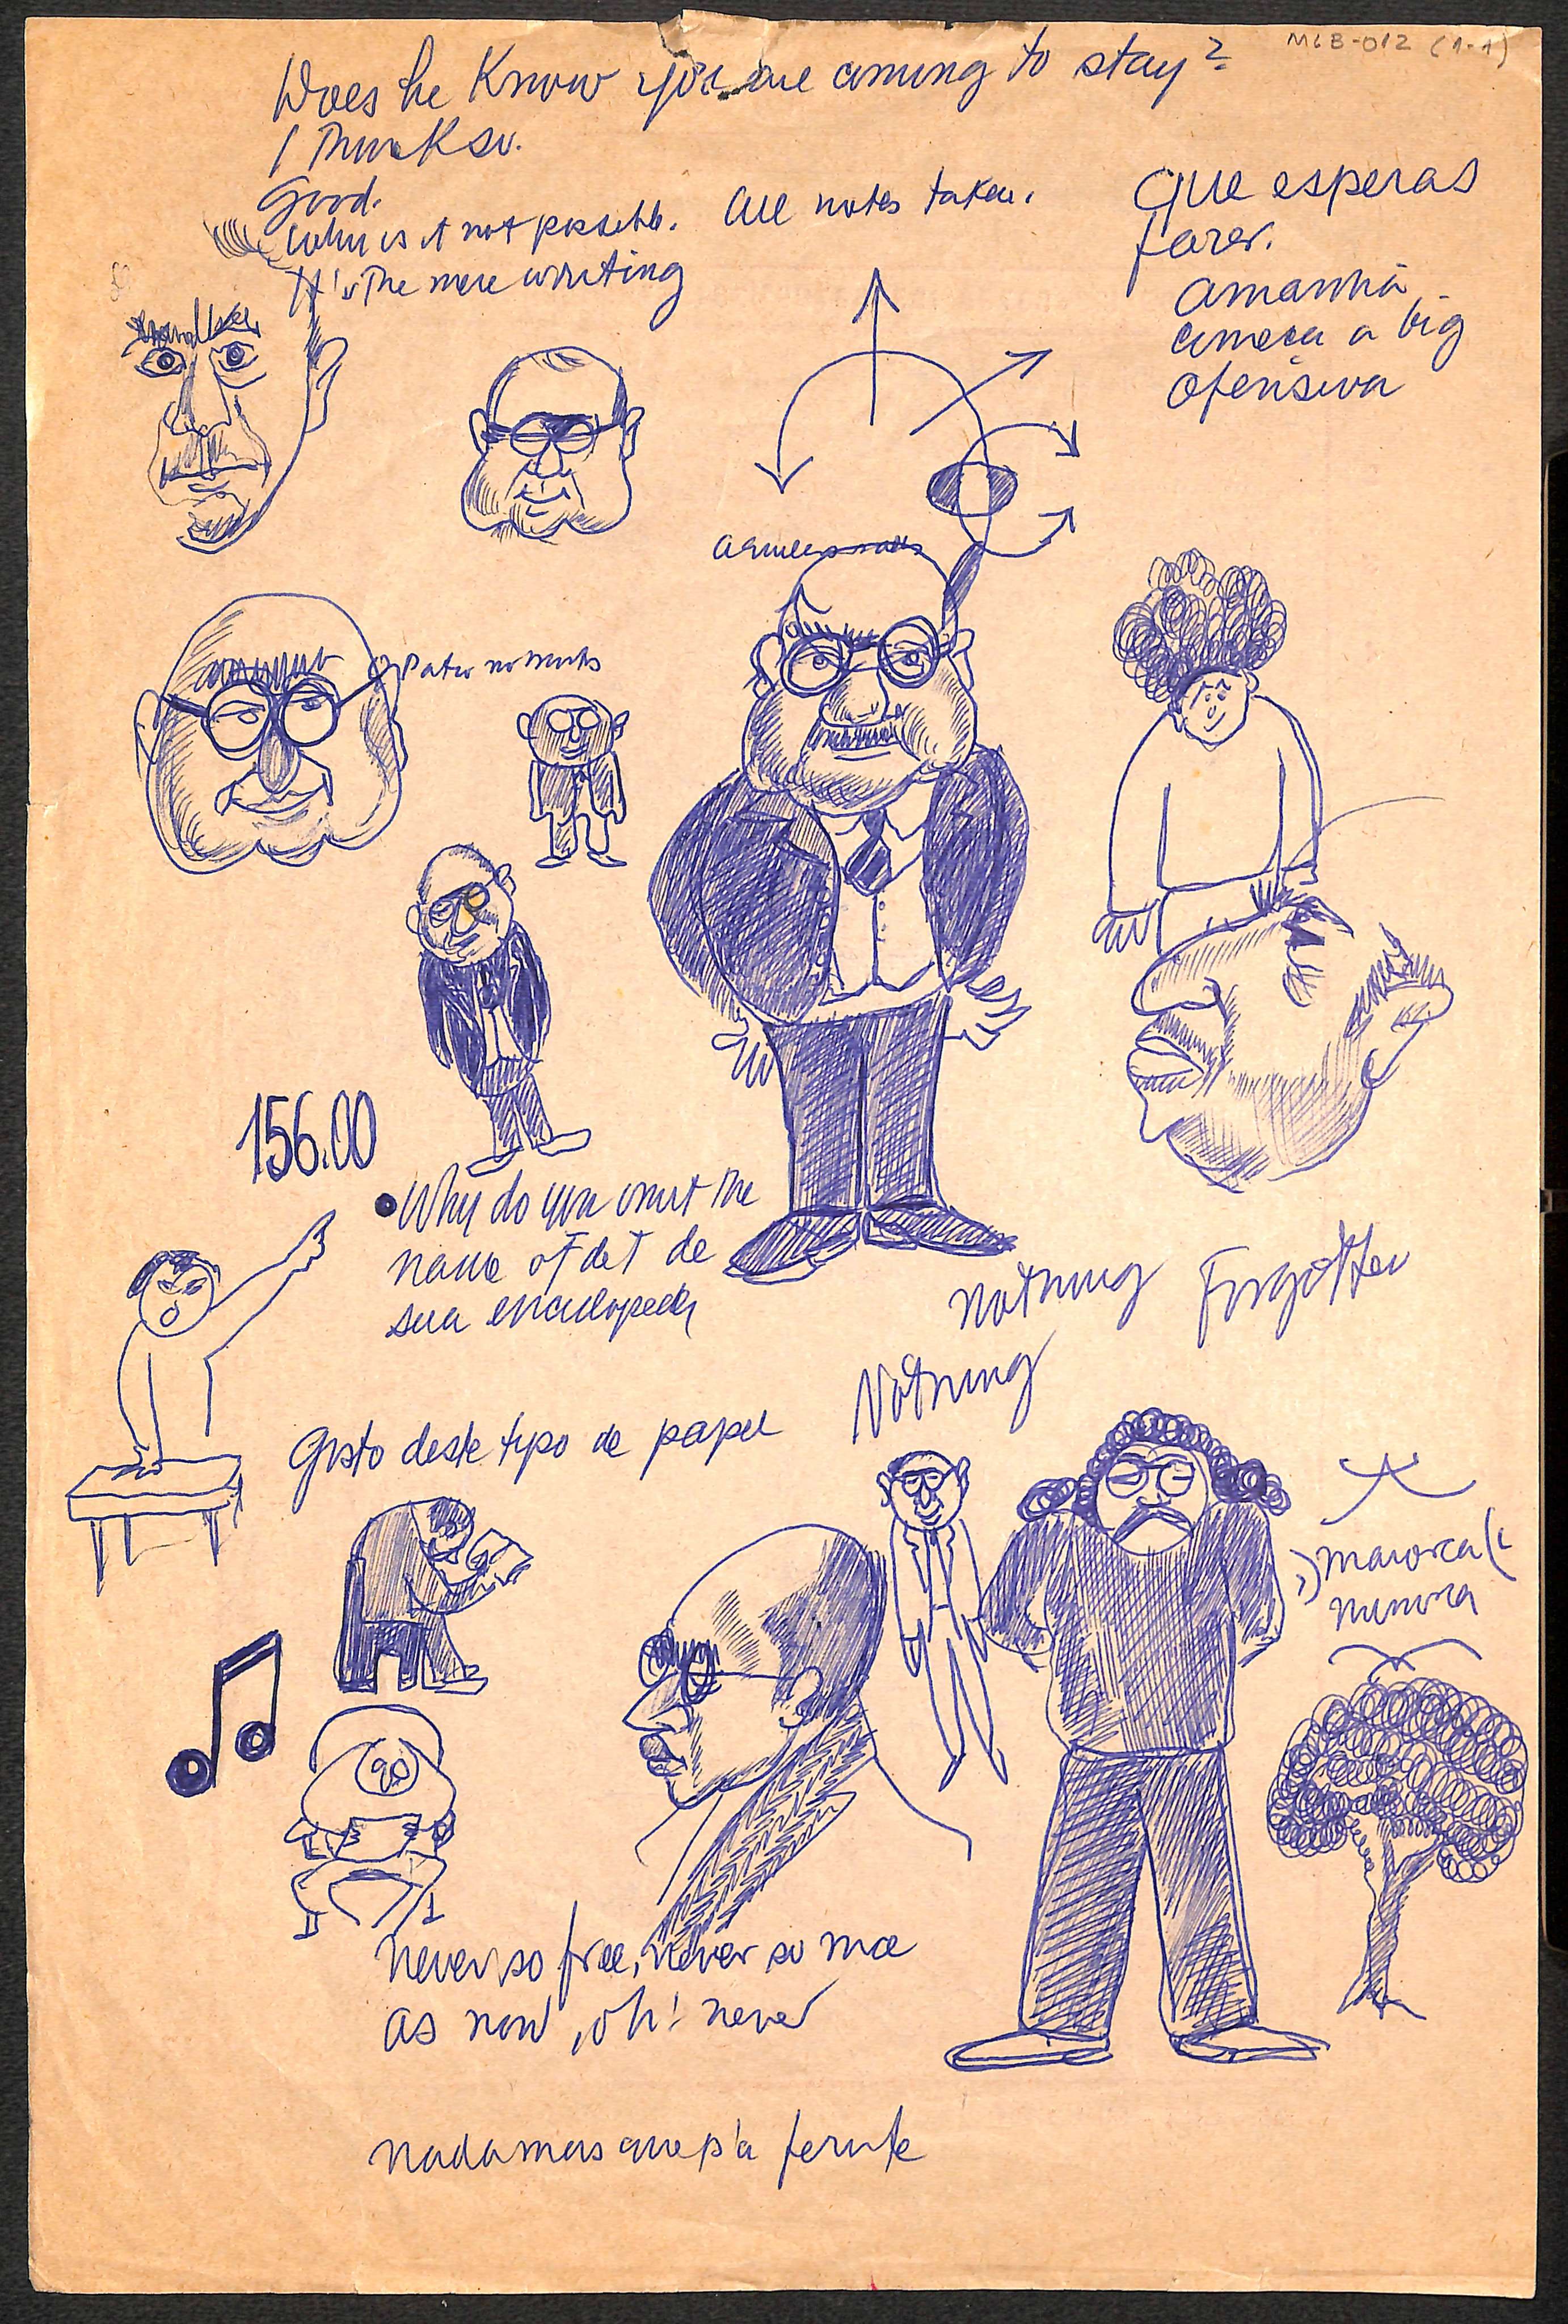 MLB-012 (1-1)
Does he Know you are coming to stay?
I Think so.
Good.
is it not possible. All notes taken.
It's The mere writing
Que esperas
fazer.
amanhã
começa a big
ofensiva
156.00
Why do you omit The
name of det de
sua
Nothing Forgotten
Nothing
Gosto deste tipo de papel
maiorca
minorca
Never so free, never so me
as now, oh! never
nada mais que p'a